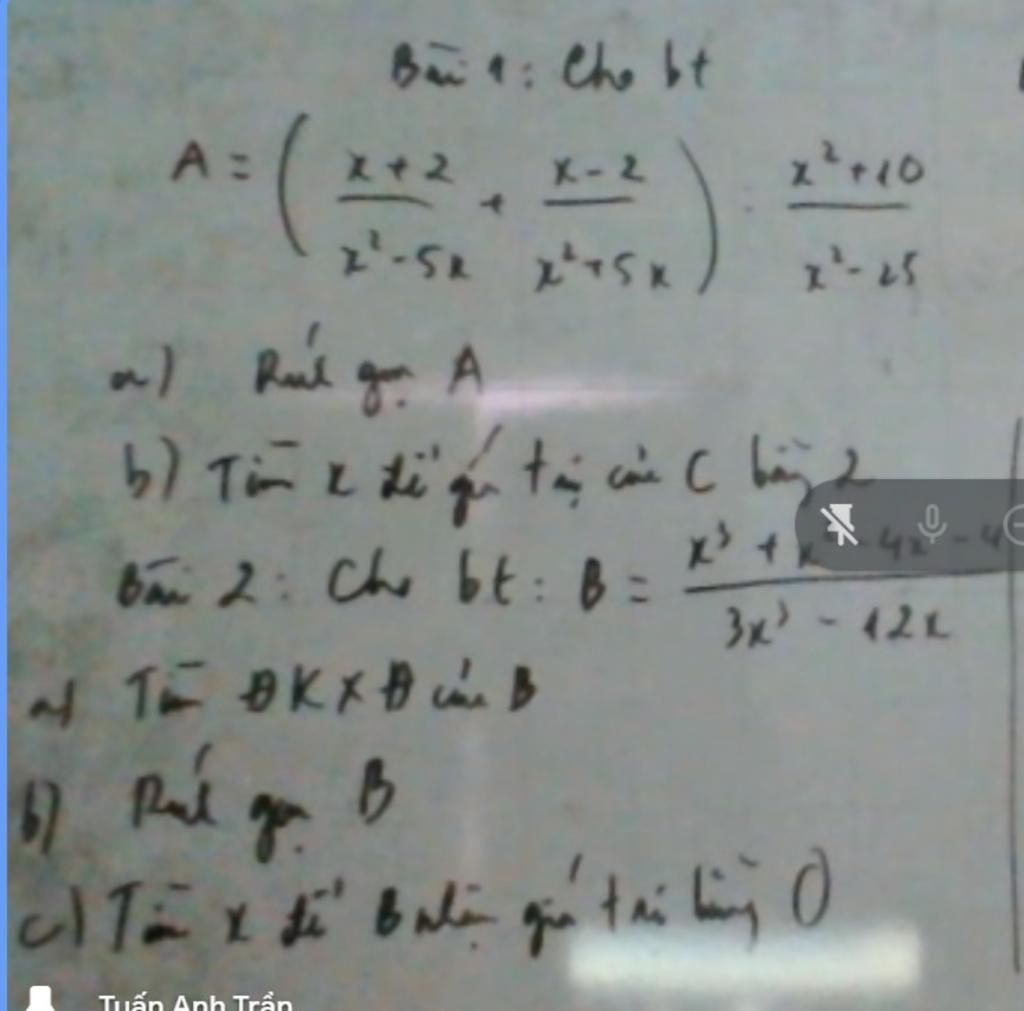 Bài 1: Cho bt
A = ( x+2 / x²-5x + x-2 / x²+5x ) : x²+10 / x²-25
a) Rút gọn A
b) Tìm x để giá trị của C bằng 2
Bài 2: Cho bt: B = x³ + x² - 4x - 4 / 3x³ - 12x
a) Tìm ĐKXĐ của B
b) Rút gọn B
c) Tìm x để B nhận giá trị bằng 0
Tuấn Anh Trần